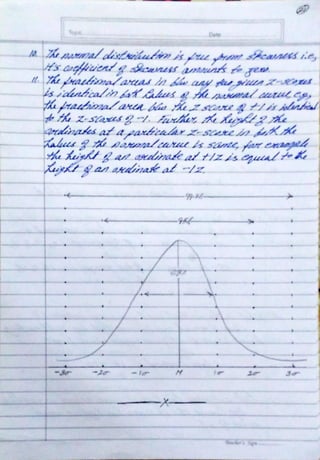 Topic
Date
10. The normal distribution is free from skewness i.e,
it's coefficient of skewness amounts to zero.
11. The fractional areas in b/w any two given z-scores
is identical in both halves of the normal curve e.g,
the fractional area b/w the z score of +1 is identical
to the z-scores of -1. Further, the height of the
ordinates at a particular z-score in both the
halves of the normal curve is same, for example
the height of an ordinate at +1z is equal to the
height of an ordinate at -1z.
-3σ -2σ -1σ M 1σ 2σ 3σ
x
Teacher's Sign